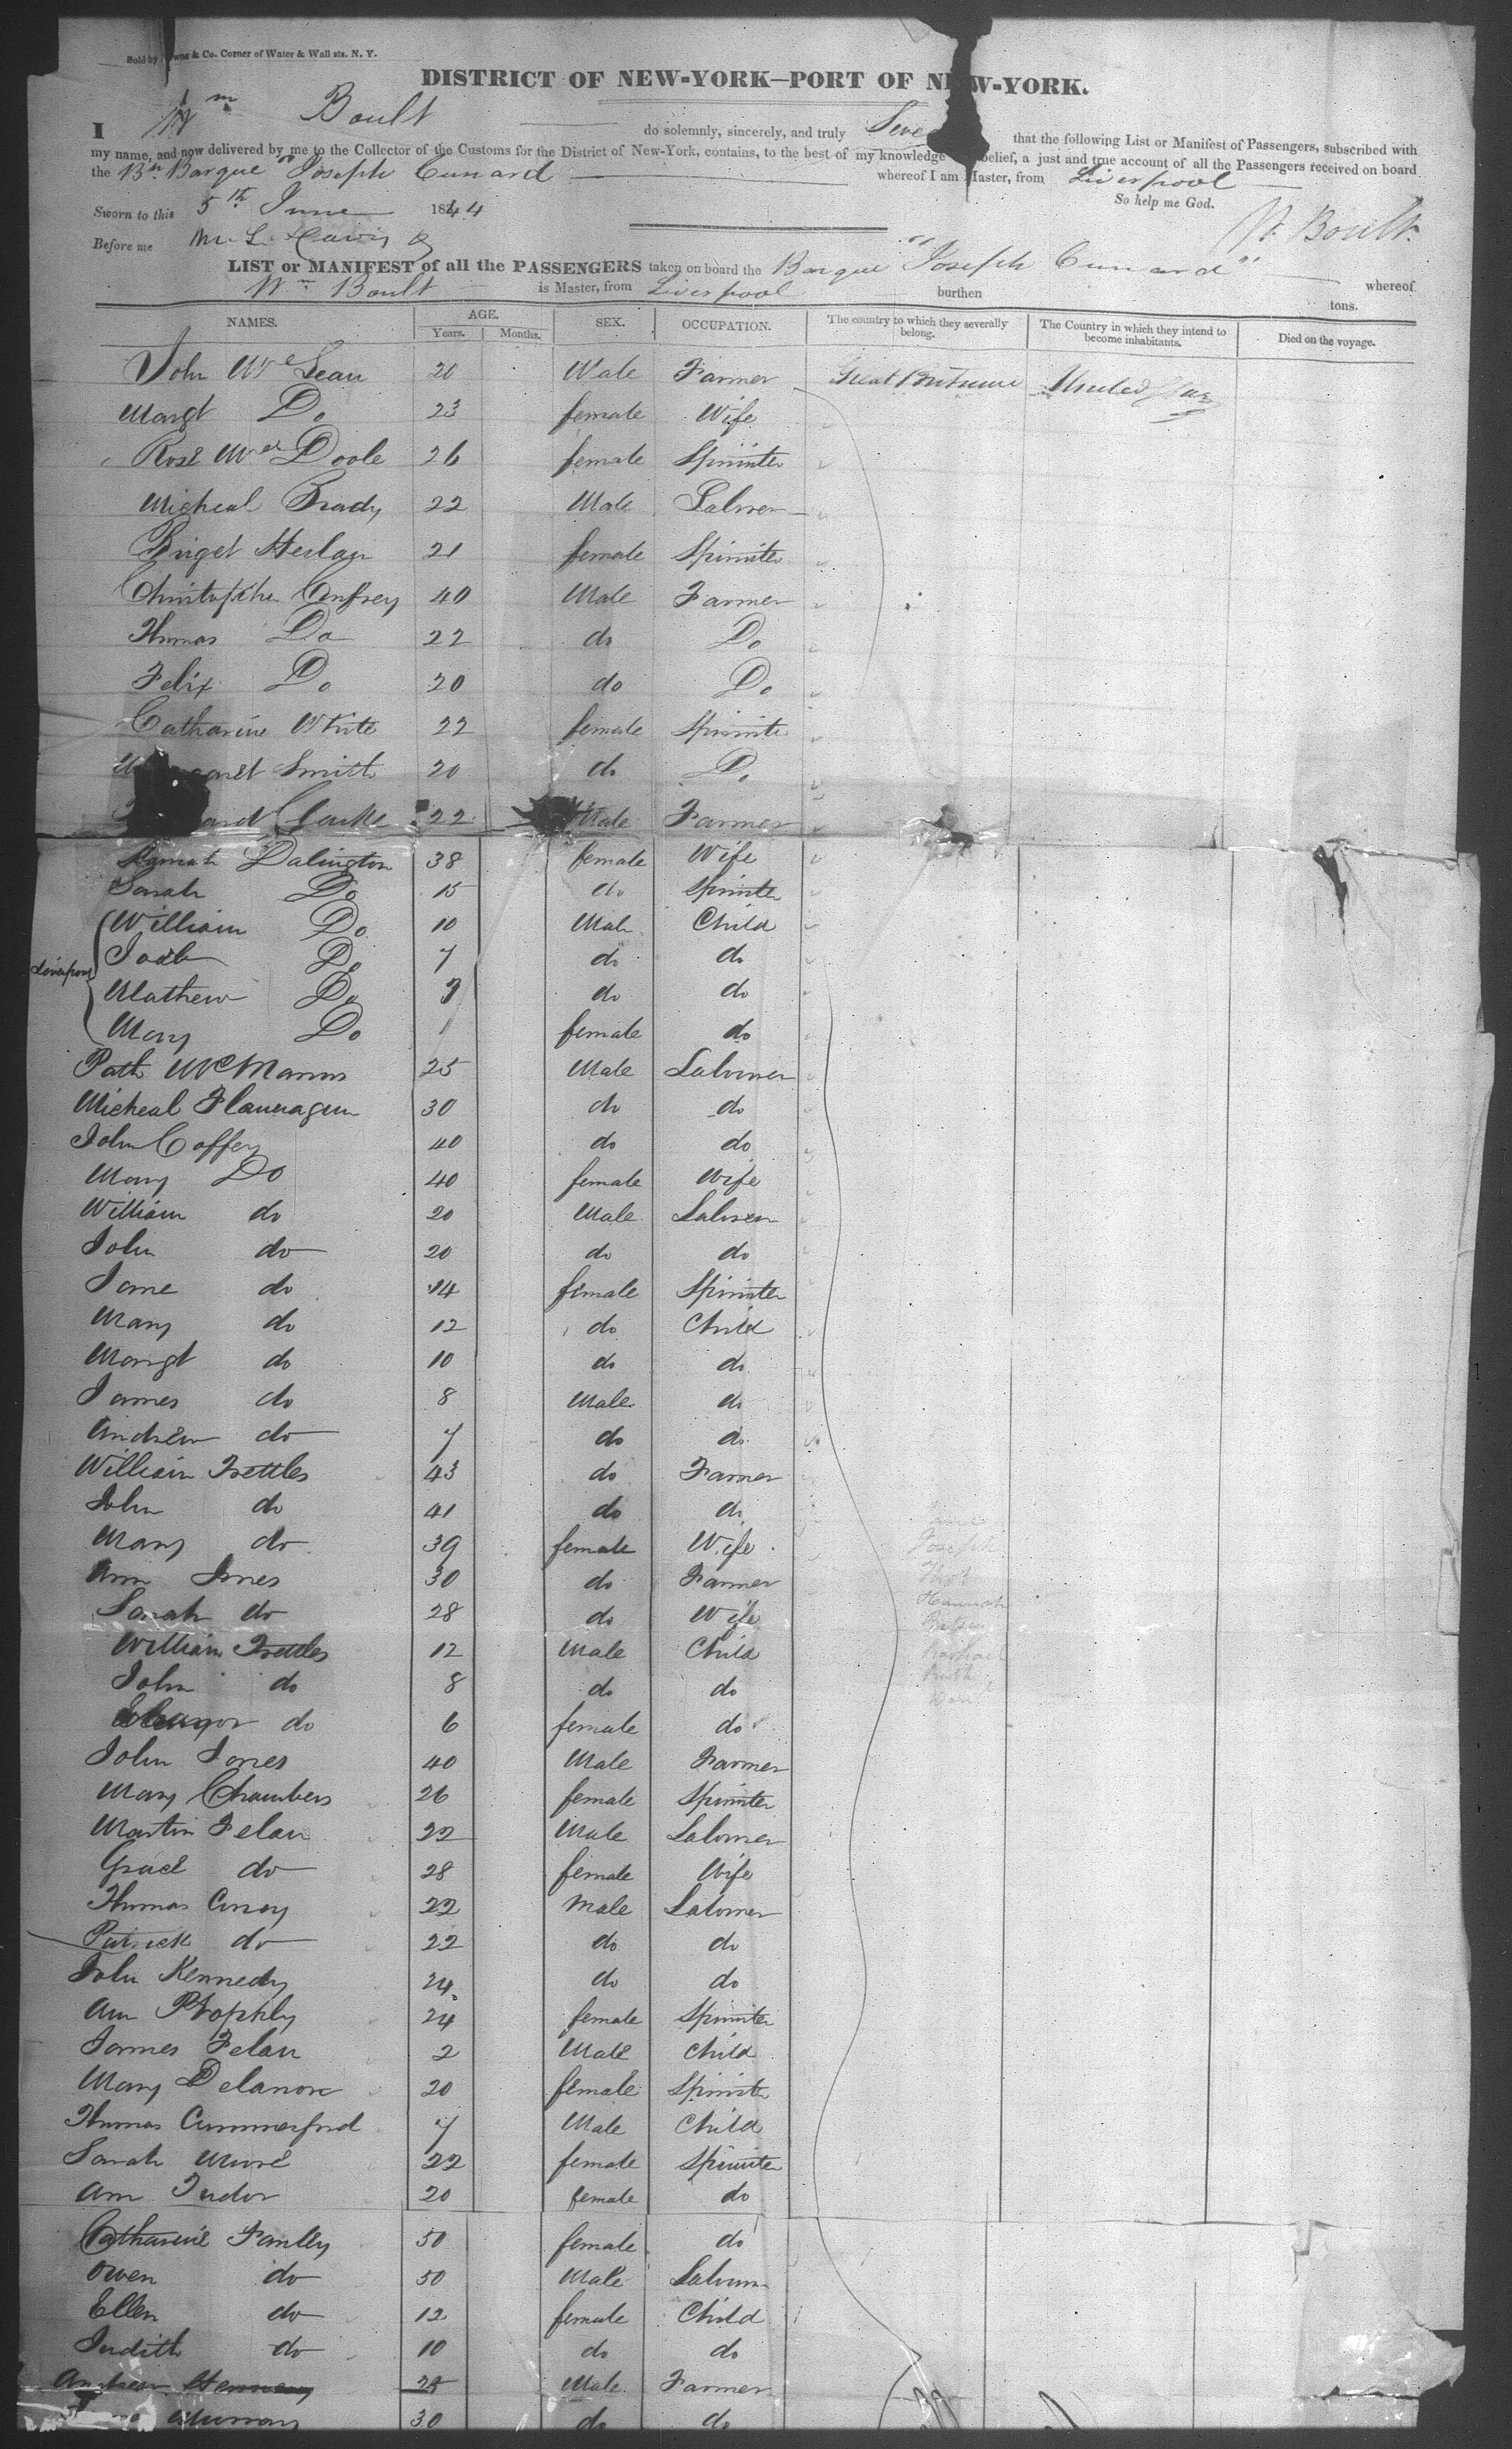 Sold by & Co. Corner of Water & Wall sts. N. Y.
DISTRICT OF NEW-YORK—PORT OF NEW-YORK.
I Wm Boult do solemnly, sincerely, and truly that the following List or Manifest of Passengers, subscribed with
my name, and now delivered by me to the Collector of the Customs for the District of New-York, contains, to the best of my knowledge belief, a just and true account of all the Passengers received on board
the Bn Barque "Joseph Cunard whereof I am Master, from Liverpool
So help me God.
Sworn to this 5th June 1844
W. Boult
Before me
LIST or MANIFEST of all the PASSENGERS taken on board the Barque "Joseph Cunard" whereof
Wm Boult is Master, from Liverpool burthen tons.
NAMES. AGE. Years. Months. SEX. OCCUPATION. The country to which they severally belong. The Country in which they intend to become inhabitants. Died on the voyage.
John McLean 20 Male Farmer Great Britain United
Margt Do 23 female Wife
Rose Doole 26 female Spinster
Micheal Brady 22 Male Labourer
Briget 21 female Spinster
Confrey 40 Male Farmer
Thomas Do 22 do Do
Felix Do 20 do Do
Catharine White 22 female Spinster
Smith 20 do Do
Clarke 22 Male Farmer
Dalington 38 female Wife
Sarah Do 15 do Spinster
William Do 10 Male Child
Do 7 do do
Liverpool
Mathew Do 3 do do
Mary Do 1 female do
Patk McManus 25 Male Labourer
Micheal Flannagan 30 do do
John Coffey 40 do do
Mary Do 40 female Wife
William do 20 Male Labourer
John do 20 do do
Jane do 14 female Spinster
Mary do 12 do Child
Margt do 10 do do
James do 8 Male do
Andrew do 7 do do
William Frettles 43 do Farmer
John do 41 do do
Mary do 39 female Wife
Ann Jones 30 do Farmer
Joseph
Sarah do 28 do Wife
Hannah
William Frettles 12 Male Child
John do 8 do do
do 6 female do
John Jones 40 Male Farmer
Mary Chambers 26 female Spinster
Martin Felan 22 Male Labourer
Grace do 28 female Wife
Thomas 22 Male Labourer
Patrick do 22 do do
John Kennedy 24 do do
Ann 24 female Spinster
James Felan 2 Male Child
Mary Delanore 20 female Spinster
Thomas Cummerford 7 Male Child
Sarah Moore 22 female Spinster
Ann Tudor 20 female do
Catharine Fanley 50 female do
Owen do 50 Male Labourer
Ellen do 12 female Child
Judith do 10 do do
Andrew 25 Male Farmer
Murray 30 do do